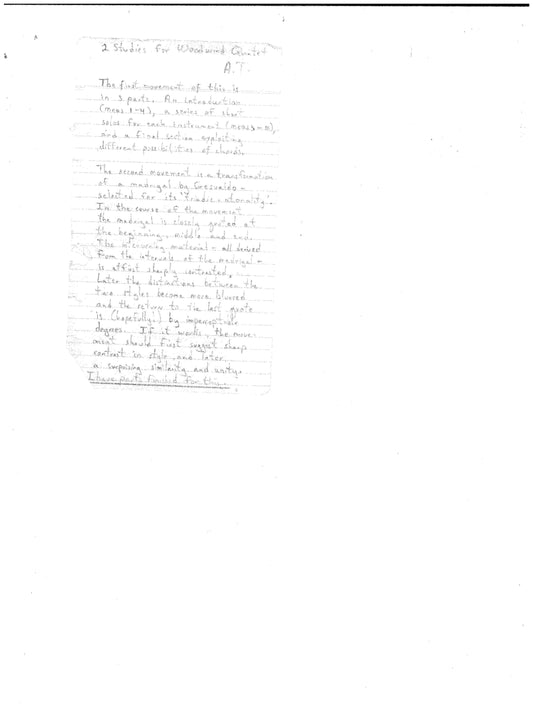 2 Studies for Woodwind Quartet
A.T.
The first movement of this is
in 3 parts. An introduction
(meas 1-4), a series of short
solos for each instrument (meas
and a final section exploiting
different possibilities of chords.
The second movement is a transformation
of a madrigal by Gesualdo -
selected for its 'triadic atonality'.
In the course of the movement
the madrigal is closely quoted at
the beginning, middle and end.
The intervening material - all derived
from the intervals of the madrigal -
is at first sharply contrasted.
Later the distinctions between the
two styles become more blurred
and the return to the last quote
is (hopefully!) by imperceptible
degrees. If it works, the move-
ment should first suggest sharp
contrast in style, and later,
a surprising similarity and unity.
I have parts finished for this.